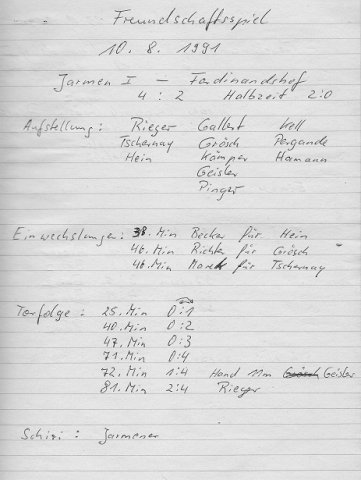 Freundschaftsspiel
10. 8. 1991
Jarmen I – Ferdinandshof
4 : 2 Halbzeit 2:0
Aufstellung: Rieger Gallert Kell
Tschernay Grösch Pergande
Hein Kämper Hamann
Geisler
Pinger
Einwechslungen: 38. Min Becker für Hein
46. Min Richter für Grösch
46. Min Marek für Tschernay
Torfolge: 25. Min 0:1
40. Min 0:2
47. Min 0:3
71. Min 0:4
72. Min 1:4 Hand 11m Grösch Geisler
81. Min 2:4 Rieger
Schiri: Jarmener